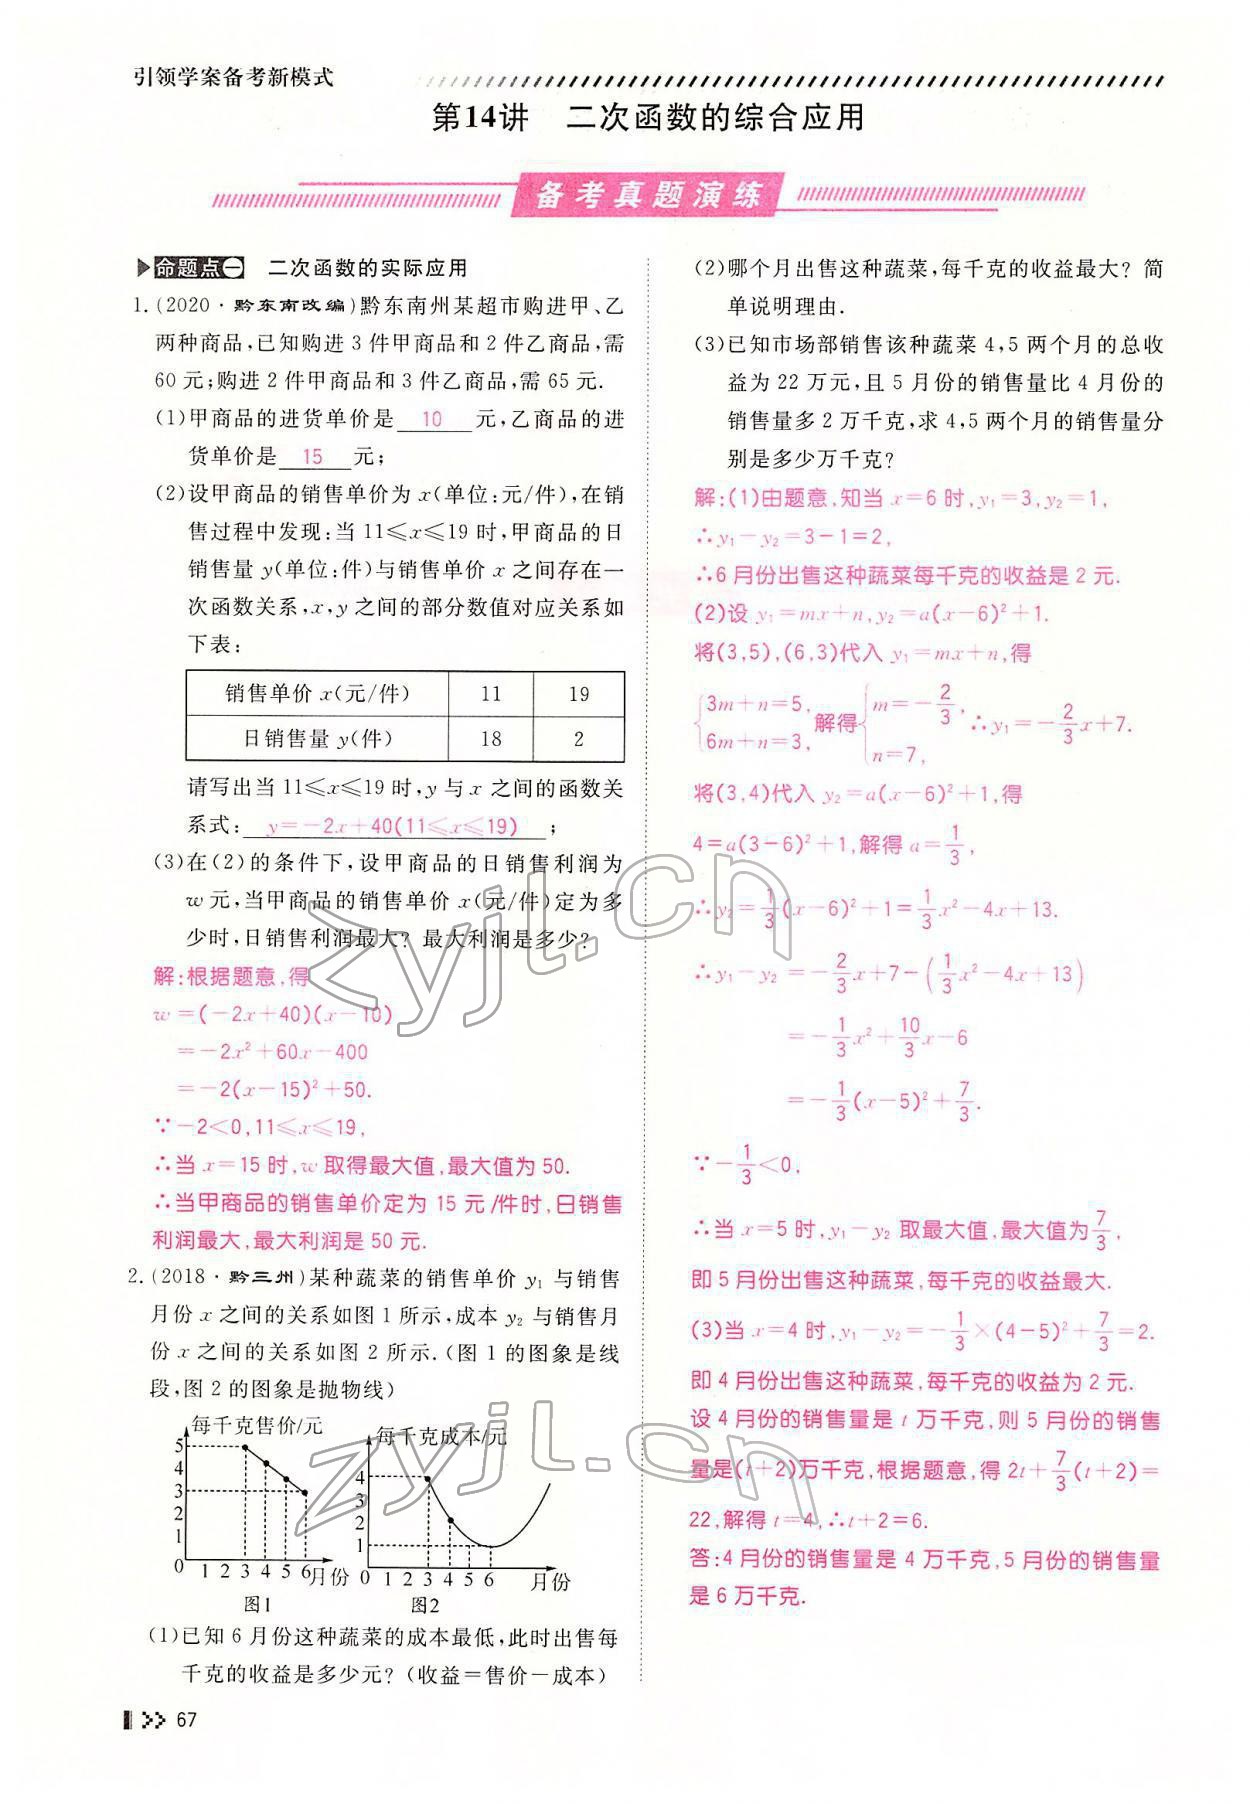 引领学案备考新模式
第14讲 二次函数的综合应用
备考真题演练
命题点一 二次函数的实际应用
1.(2020·黔东南改编)黔东南州某超市购进甲、乙
两种商品,已知购进3件甲商品和2件乙商品,需
60元;购进2件甲商品和3件乙商品,需65元.
(1)甲商品的进货单价是 10 元,乙商品的进
货单价是 15 元;
(2)设甲商品的销售单价为x(单位:元/件),在销
售过程中发现:当11≤x≤19时,甲商品的日
销售量y(单位:件)与销售单价x之间存在一
次函数关系,x,y之间的部分数值对应关系如
下表:
销售单价x(元/件) 11 19
日销售量y(件) 18 2
请写出当11≤x≤19时,y与x之间的函数关
系式: y=-2x+40(11≤x≤19) ;
(3)在(2)的条件下,设甲商品的日销售利润为
w元,当甲商品的销售单价x(元/件)定为多
少时,日销售利润最大?最大利润是多少?
解:根据题意,得
w=(-2x+40)(x-10)
=-2x²+60x-400
=-2(x-15)²+50.
∵-2<0,11≤x≤19,
∴当x=15时,w取得最大值,最大值为50.
∴当甲商品的销售单价定为15元/件时,日销售
利润最大,最大利润是50元.
2.(2018·黔三州)某种蔬菜的销售单价y₁与销售
月份x之间的关系如图1所示,成本y₂与销售月
份x之间的关系如图2所示.(图1的图象是线
段,图2的图象是抛物线)
每千克售价/元
5
4
3
2
1
0 1 2 3 4 5 6 月份
图1
每千克成本/元
4
3
2
1
0 1 2 3 4 5 6 月份
图2
(1)已知6月份这种蔬菜的成本最低,此时出售每
千克的收益是多少元?(收益=售价-成本)
67
(2)哪个月出售这种蔬菜,每千克的收益最大?简
单说明理由.
(3)已知市场部销售该种蔬菜4,5两个月的总收
益为22万元,且5月份的销售量比4月份的
销售量多2万千克,求4,5两个月的销售量分
别是多少万千克?
解:(1)由题意,知当x=6时,y₁=3,y₂=1,
∴y₁-y₂=3-1=2,
∴6月份出售这种蔬菜每千克的收益是2元.
(2)设y₁=mx+n,y₂=a(x-6)²+1.
将(3,5),(6,3)代入y₁=mx+n,得
{3m+n=5, 6m+n=3, 解得{m=-2/3, n=7, ∴y₁=-2/3x+7.
将(3,4)代入y₂=a(x-6)²+1,得
4=a(3-6)²+1,解得a=1/3,
∴y₂=1/3(x-6)²+1=1/3x²-4x+13.
∴y₁-y₂=-2/3x+7-(1/3x²-4x+13)
=-1/3x²+10/3x-6
=-1/3(x-5)²+7/3.
∵-1/3<0,
∴当x=5时,y₁-y₂取最大值,最大值为7/3,
即5月份出售这种蔬菜,每千克的收益最大.
(3)当x=4时,y₁-y₂=-1/3×(4-5)²+7/3=2.
即4月份出售这种蔬菜,每千克的收益为2元.
设4月份的销售量是t万千克,则5月份的销售
量是(t+2)万千克,根据题意,得2t+7/3(t+2)=
22,解得t=4,∴t+2=6.
答:4月份的销售量是4万千克,5月份的销售量
是6万千克.
zyjl.cn
zyjl.cn